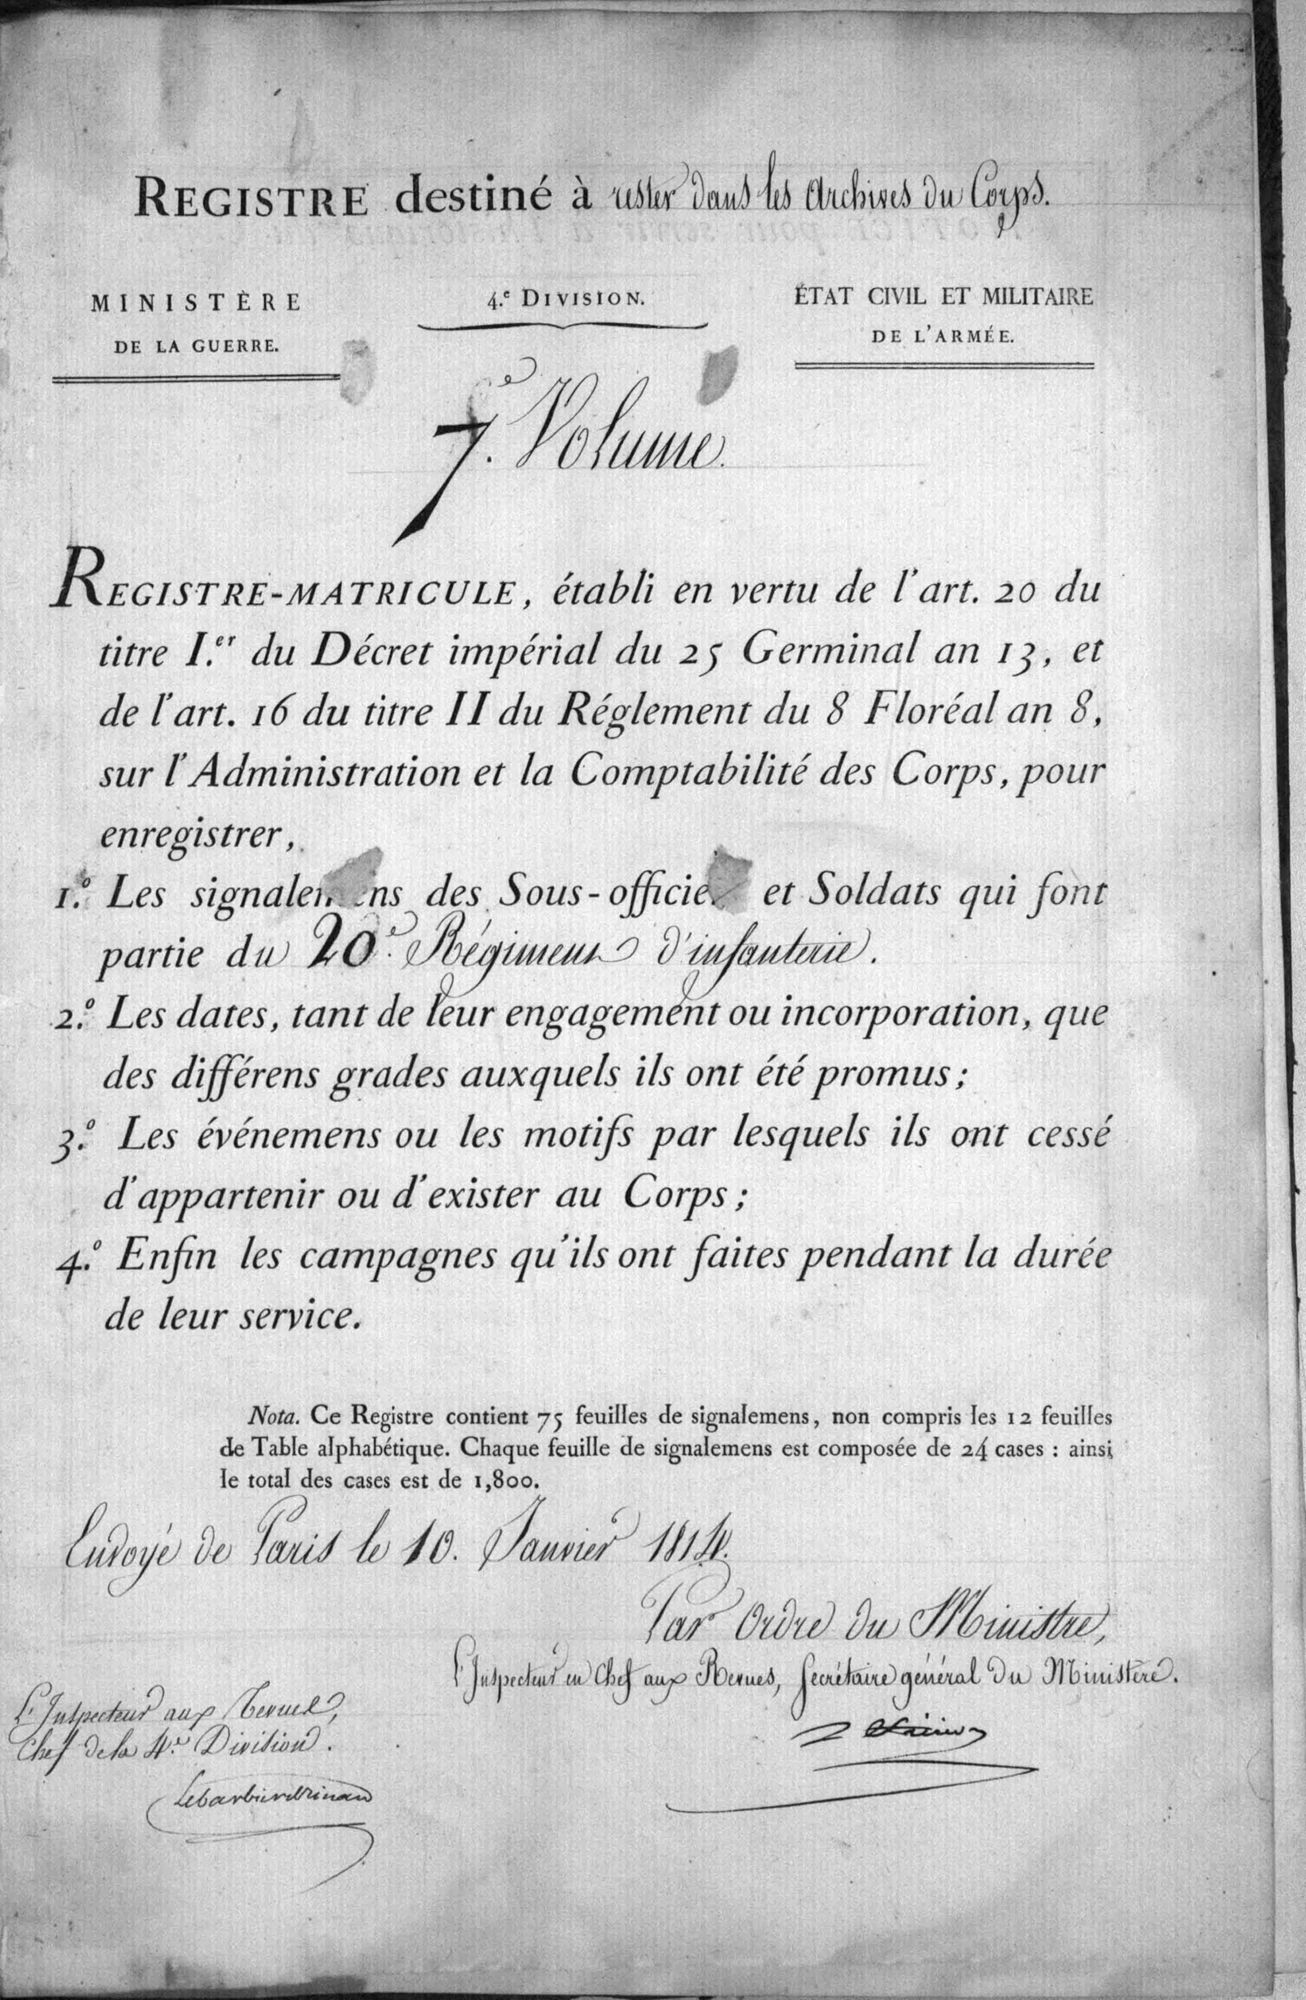 REGISTRE destiné à rester dans les Archives du Corps.
MINISTÈRE
DE LA GUERRE.
4.e DIVISION.
ÉTAT CIVIL ET MILITAIRE
DE L'ARMÉE.
7.e Volume.
REGISTRE-MATRICULE, établi en vertu de l'art. 20 du
titre I.er du Décret impérial du 25 Germinal an 13, et
de l'art. 16 du titre II du Réglement du 8 Floréal an 8,
sur l'Administration et la Comptabilité des Corps, pour
enregistrer,
1.º Les signalemens des Sous-officiers et Soldats qui font
partie du 20.e Régiment d'infanterie.
2.º Les dates, tant de leur engagement ou incorporation, que
des différens grades auxquels ils ont été promus;
3.º Les événemens ou les motifs par lesquels ils ont cessé
d'appartenir ou d'exister au Corps;
4.º Enfin les campagnes qu'ils ont faites pendant la durée
de leur service.
Nota. Ce Registre contient 75 feuilles de signalemens, non compris les 12 feuilles
de Table alphabétique. Chaque feuille de signalemens est composée de 24 cases : ainsi
le total des cases est de 1,800.
Envoyé de Paris le 10. Janvier 1814.
Par Ordre du Ministre,
L'Inspecteur en Chef aux Revues, Secrétaire général du Ministère.
L'Inspecteur aux Revues,
Chef de la 4.e Division.